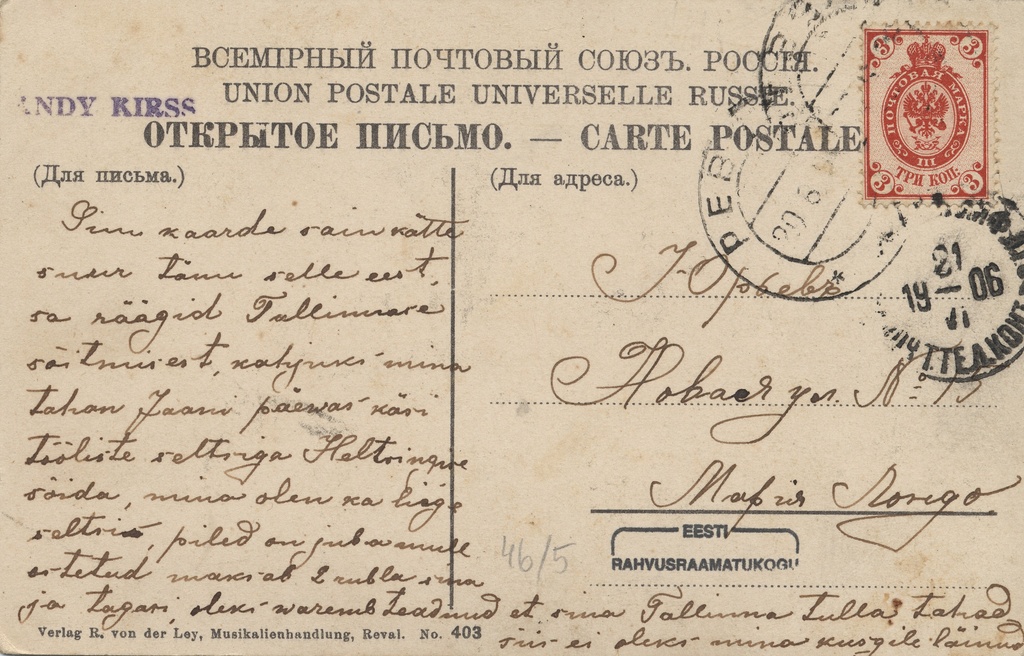 ВСЕМІРНЫЙ ПОЧТОВЫЙ СОЮЗЪ. РОССІЯ.
UNION POSTALE UNIVERSELLE RUSSIE.
ANDY KIRSS
ОТКРЫТОЕ ПИСЬМО. — CARTE POSTALE
(Для письма.)
(Для адреса.)
3 3
ПОЧТОВАЯ МАРКА
III
ТРИ КОП.
3 3
РЕВ
20 6
21
19 — 06
VI
ПОЧТ.ТЕЛ.КОНТ
Sinu kaarde sain kätte
suur tänu selle eest,
sa räägid Tallinnase
sõitmisest, kahjuks mina
tahan Jaani päewas käsi
tööliste seltsiga Helsingisse
sõida, mina olen ka liige
seltsis, piled on juba mulle
ostetud maksab 2 rubla sina
ja tagasi, oleks waremb teadnud et sina Tallinna tulla tahad
siis ei oleks mina kusgile läinud
Юрьевъ
Новая ул. №
Марія
EESTI
RAHVUSRAAMATUKOGU
46/5
Verlag R. von der Ley, Musikalienhandlung, Reval. No. 403